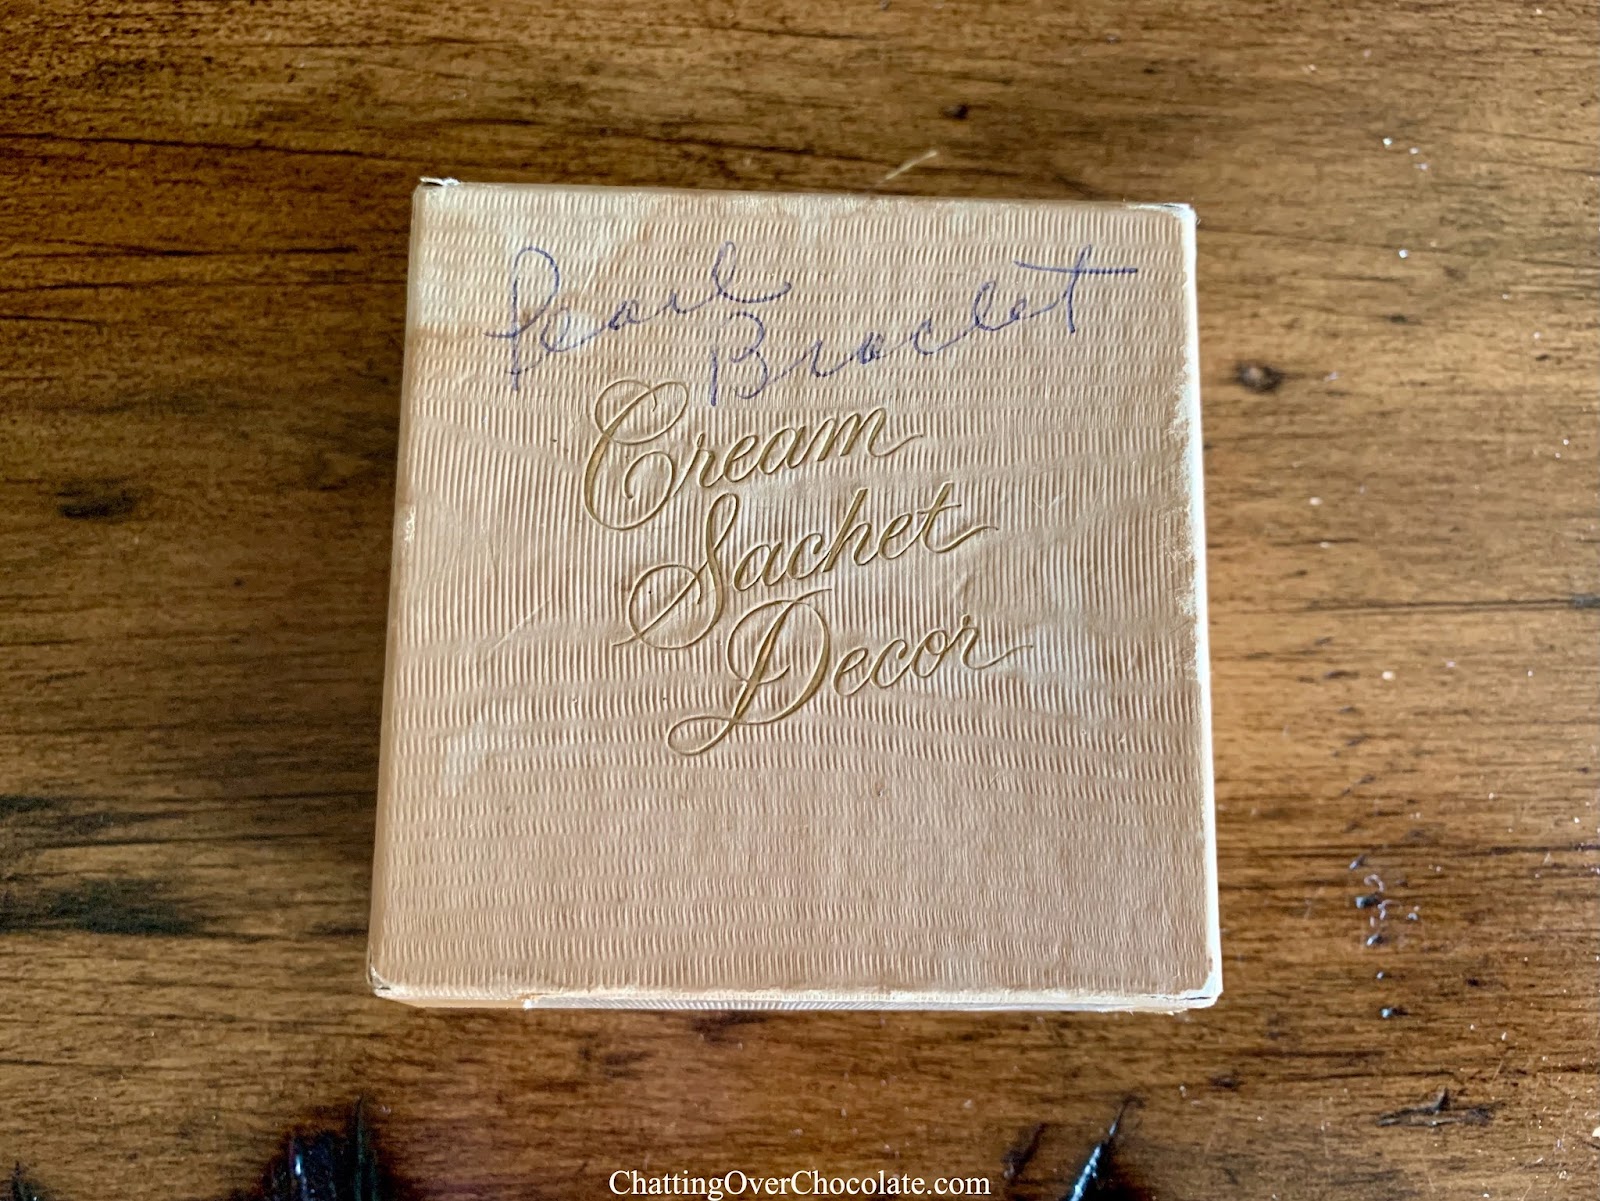 Pearl
Braclet
Cream
Sachet
Decor
ChattingOverChocolate.com